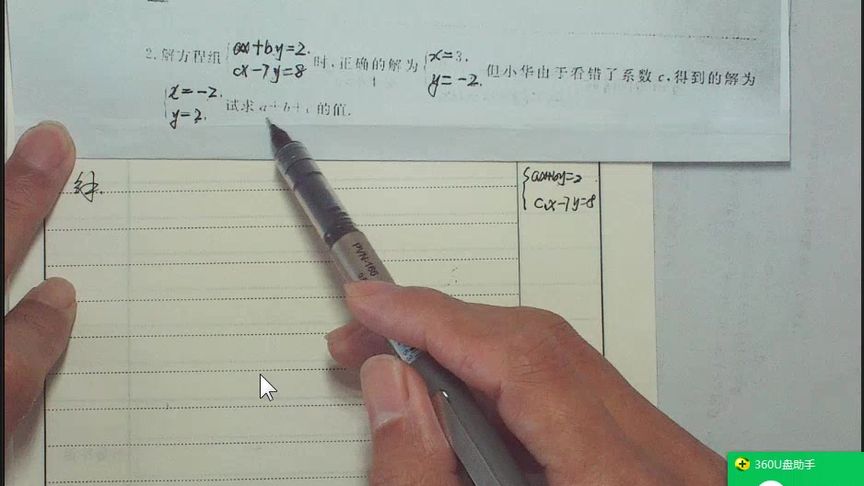 2.解方程组{ax+by=2. cx-7y=8 时,正确的解为{x=3. y=-2. 但小华由于看错了系数c,得到的解为
{x=-2. y=2. 试求a+b+c的值.
解.
{ax+by=2
cx-7y=8
PVN-166
360U盘助手